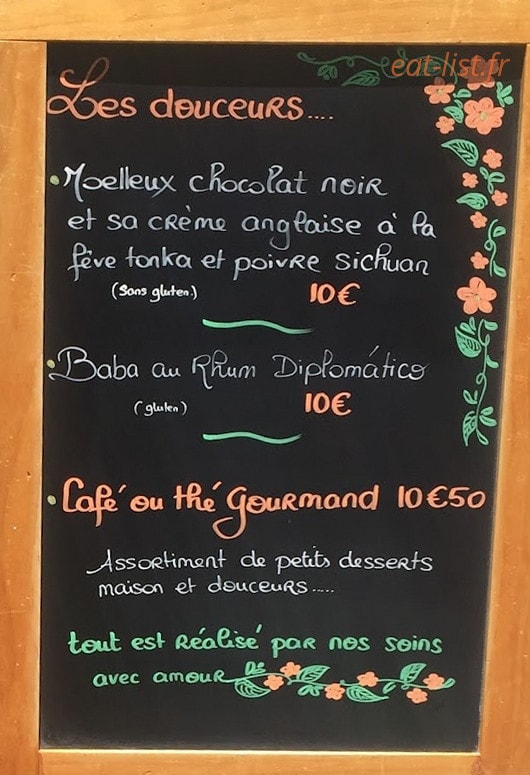 eat-list.fr
Les douceurs....
• Moelleux chocolat noir
et sa crème anglaise à la
fève tonka et poivre sichuan
(Sans gluten.) 10€
• Baba au Rhum Diplomático
(gluten) 10€
• Café ou thé gourmand 10€50
Assortiment de petits desserts
maison et douceurs.....
tout est réalisé par nos soins
avec amour